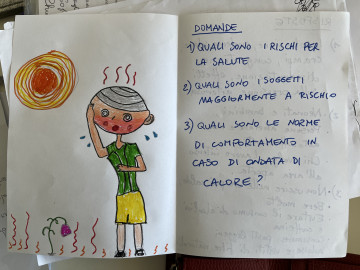 DOMANDE
1) QUALI SONO I RISCHI PER
LA SALUTE
2) QUALI SONO I SOGGETTI
MAGGIORMENTE A RISCHIO
3) QUALI SONO LE NORME
DI COMPORTAMENTO IN
CASO DI ONDATA DI
CALORE?